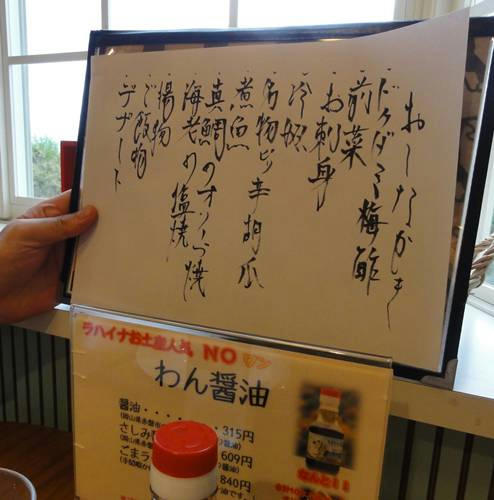 おしながき
・ドクダミ梅酢
・前菜
・お刺身
・冷鉢
・名物ピリ辛胡瓜
・煮魚
・真鯛のオリーブ焼
・海老の塩焼
・揚物
・ご飯物
・デザート
ラハイナお土産人気 NO ワン
わん醤油
醤油・・・・・・・315円
さしみ
609円
ごま
840円
なんと!!